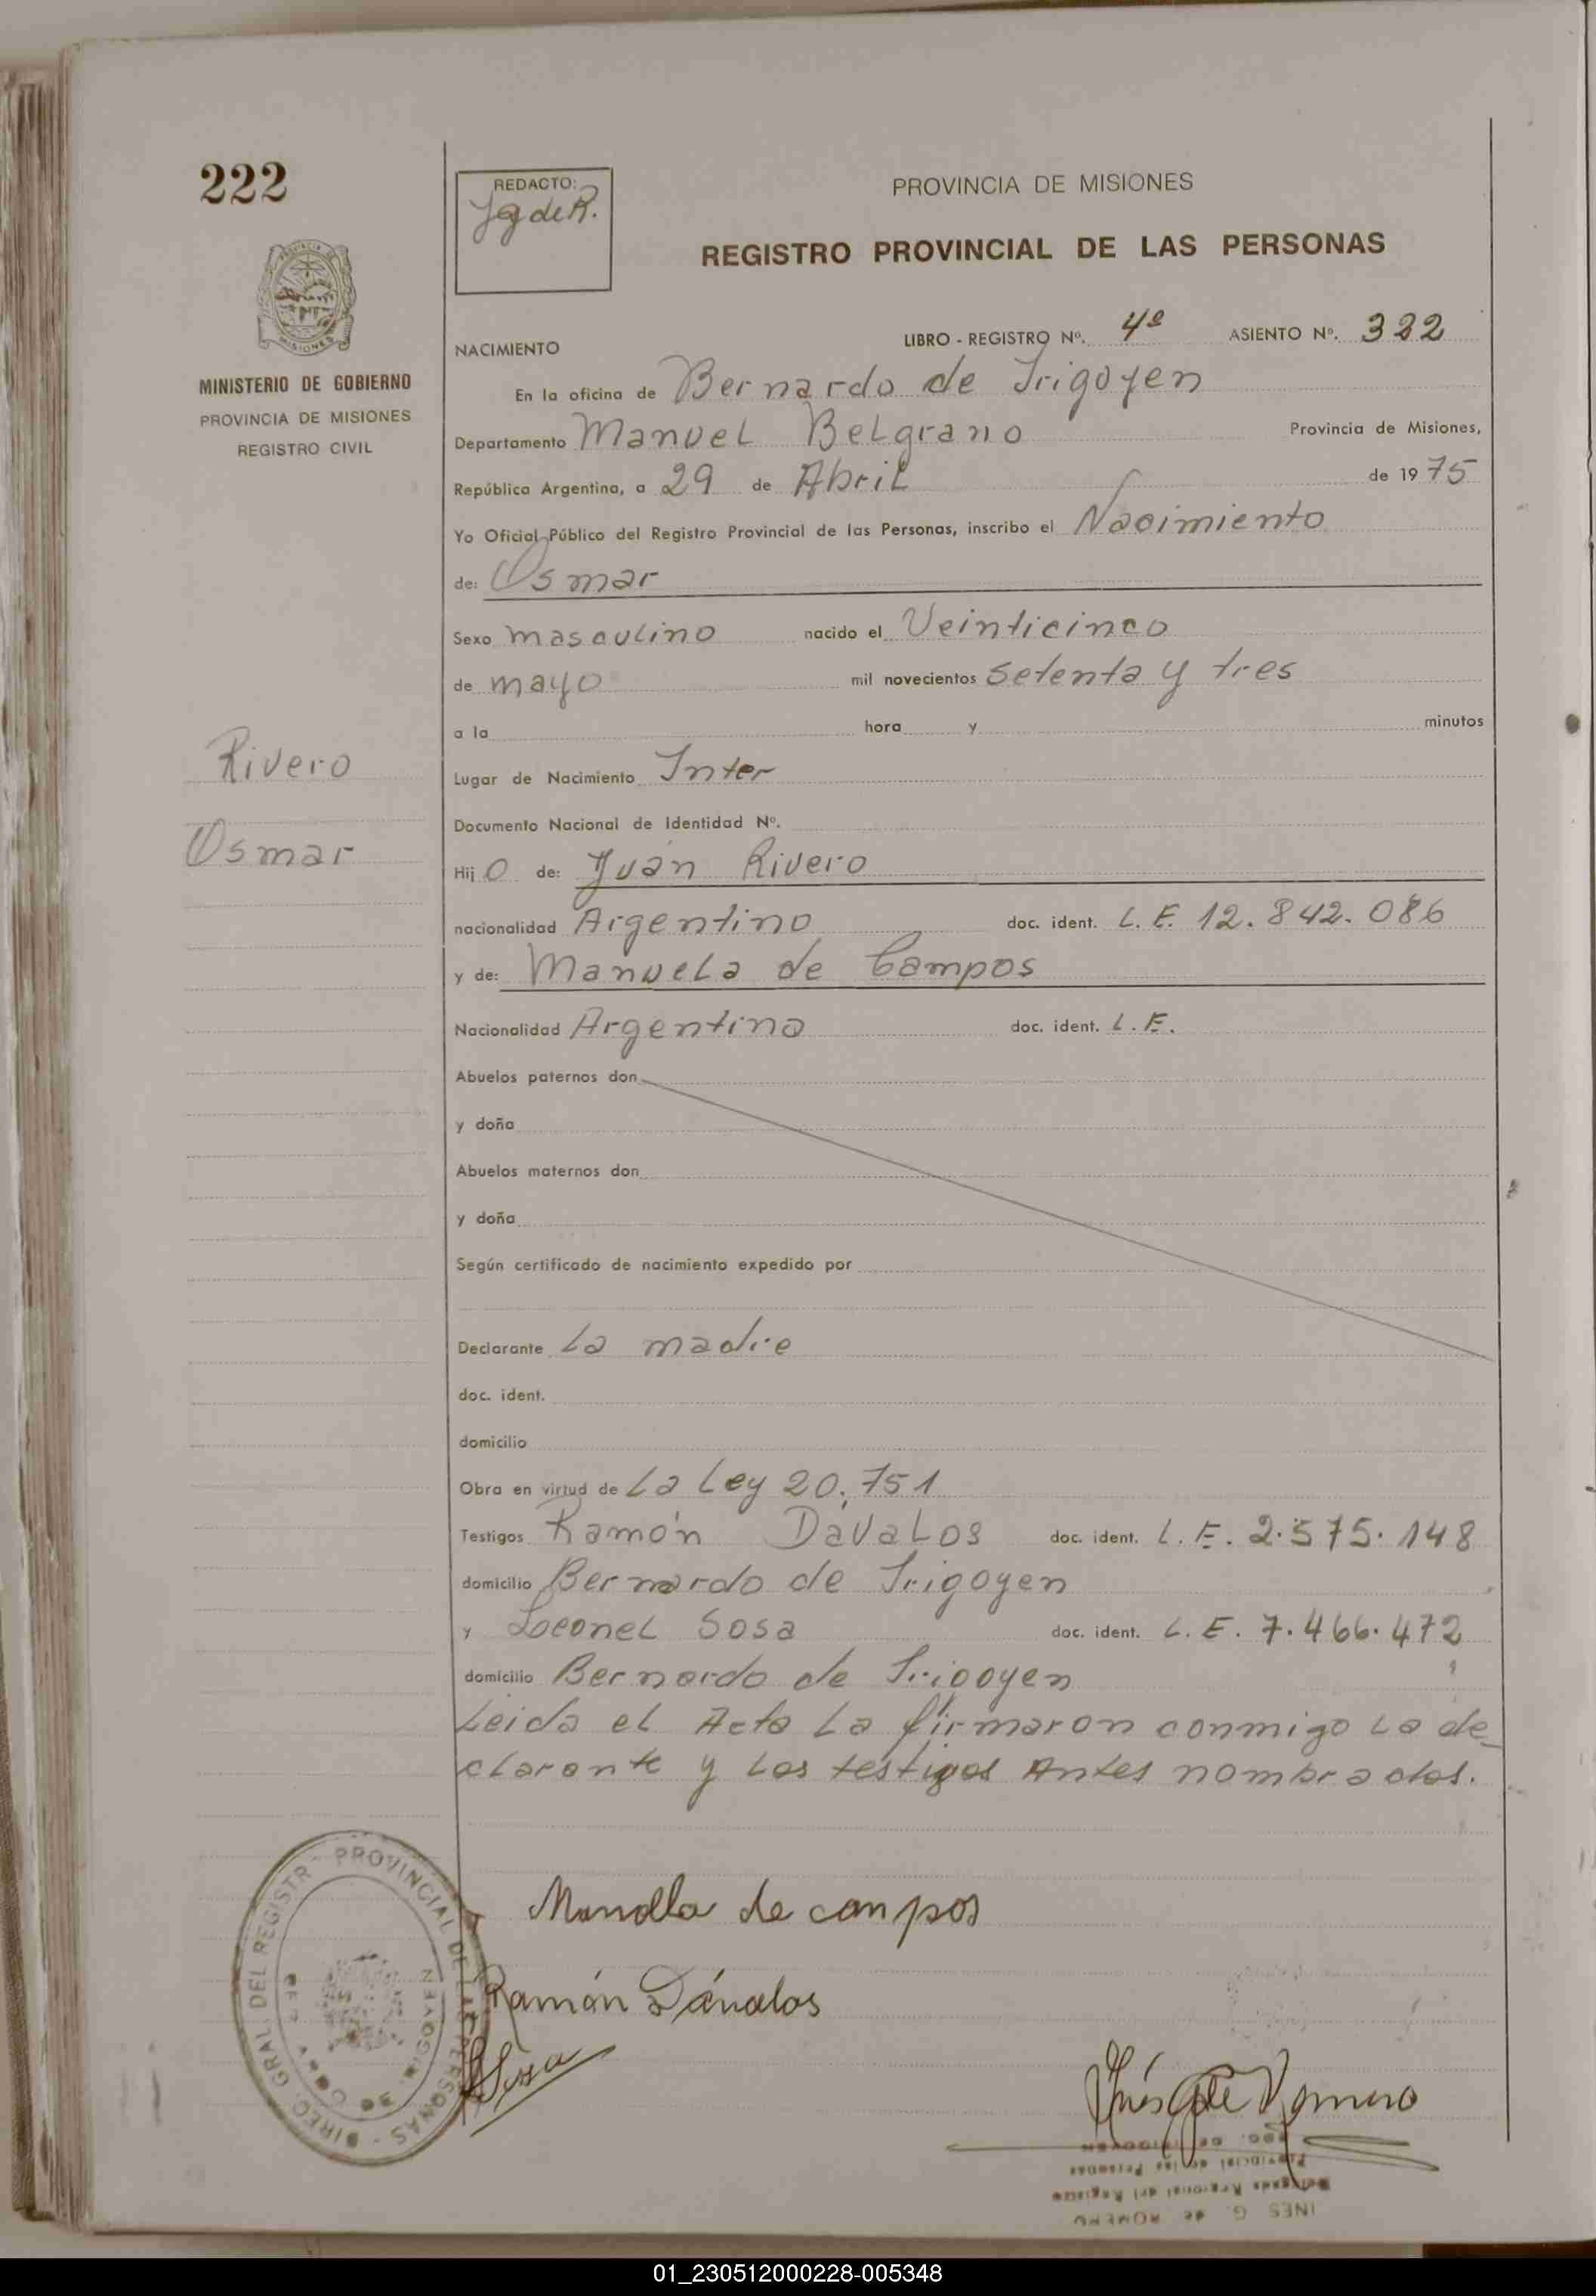 222
REDACTO:
PROVINCIA DE MISIONES
REGISTRO PROVINCIAL DE LAS PERSONAS
PROVINCIA
MISIONES
MINISTERIO DE GOBIERNO
PROVINCIA DE MISIONES
REGISTRO CIVIL
LIBRO - REGISTRO Nº. 4º ASIENTO Nº. 322
NACIMIENTO
En la oficina de Bernardo de Irigoyen
Departamento Manuel Belgrano Provincia de Misiones,
República Argentina, a 29 de Abril de 1975
Yo Oficial Público del Registro Provincial de las Personas, inscribo el Nacimiento
de: Osmar
Sexo masculino nacido el Veinticinco
de mayo mil novecientos setenta y tres
a la hora y minutos
Rivero
Osmar
Lugar de Nacimiento Inter
Documento Nacional de Identidad Nº.
Hijo de: Juan Rivero
nacionalidad Argentino doc. ident. L.E. 12.842.086
y de: Manuela de Campos
Nacionalidad Argentina doc. ident. L.E.
Abuelos paternos don
y doña
Abuelos maternos don
y doña
Según certificado de nacimiento expedido por
Declarante La madre
doc. ident.
domicilio
Obra en virtud de La Ley 20.751
Testigos Ramón Dávalos doc. ident. L.E. 2.575.148
domicilio Bernardo de Irigoyen
y Leonel Sosa doc. ident. L.E. 7.466.472
domicilio Bernardo de Irigoyen
Leida el Acta La firmaron conmigo La de_
clarante y Los testigos Antes nombrados.
Manolla de campos
Ramón Dávalos
Sosa
Inés G de Romero
DIREC. GRAL. DEL REGISTR PROVINCIAL DE LAS PERSONAS
BDO. DE IRIGOYEN
Provincial de las Personas
Delegada Regional del Registro
INES G. de ROMERO
01_230512000228-005348